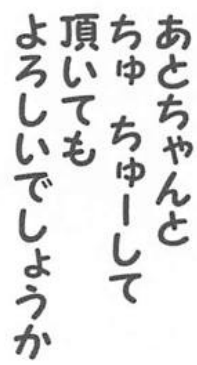 あとちゃんと
ちゅ ちゅーして
頂いても
よろしいでしょうか